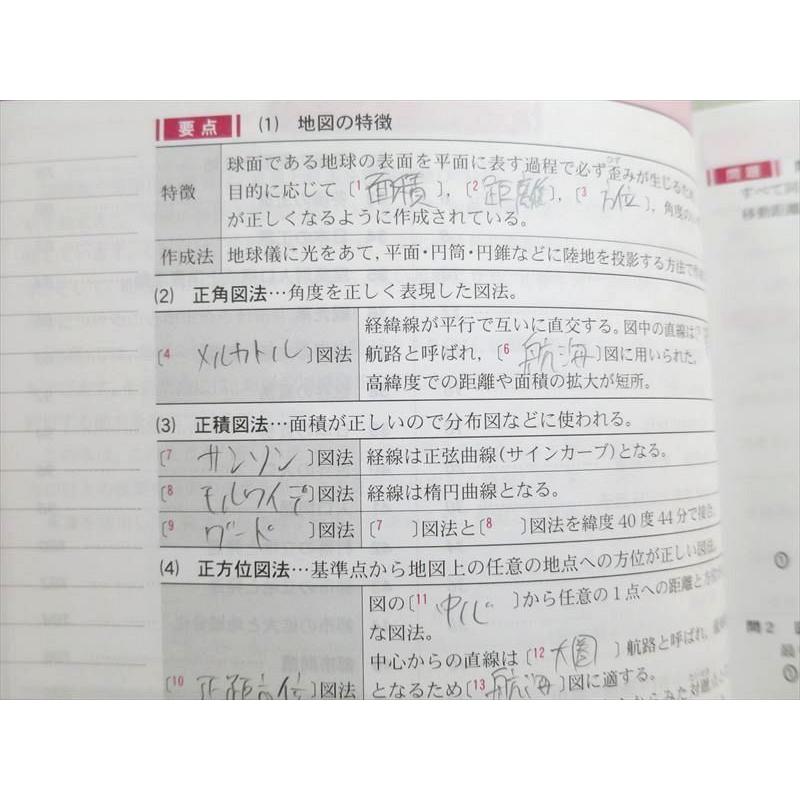 要点 (1) 地図の特徴
特徴
球面である地球の表面を平面に表す過程で必ず歪みが生じるため
ひず
目的に応じて〔1 面積〕，〔2 距離〕，〔3 方位〕，角度の
が正しくなるように作成されている。
作成法 地球儀に光をあて，平面・円筒・円錐などに陸地を投影する方法で作
(2) 正角図法…角度を正しく表現した図法。
〔4 メルカトル〕図法
経緯線が平行で互いに直交する。図中の直線は
航路と呼ばれ，〔6 航海〕図に用いられた。
高緯度での距離や面積の拡大が短所。
(3) 正積図法…面積が正しいので分布図などに使われる。
〔7 サンソン〕図法 経線は正弦曲線（サインカーブ）となる。
〔8 モルワイデ〕図法 経線は楕円曲線となる。
〔9 グード〕図法 〔7 〕図法と〔8 〕図法を緯度40度44分で接合。
(4) 正方位図法…基準点から地図上の任意の地点への方位が正しい図法。
〔10 正距方位〕図法
図の〔11 中心〕から任意の1点への距離と
な図法。
中心からの直線は〔12 大圏〕航路と呼ばれ，
となるため〔13 航海〕図に適する。
からみた対
問題
すべて
移動距離
①
問2
①